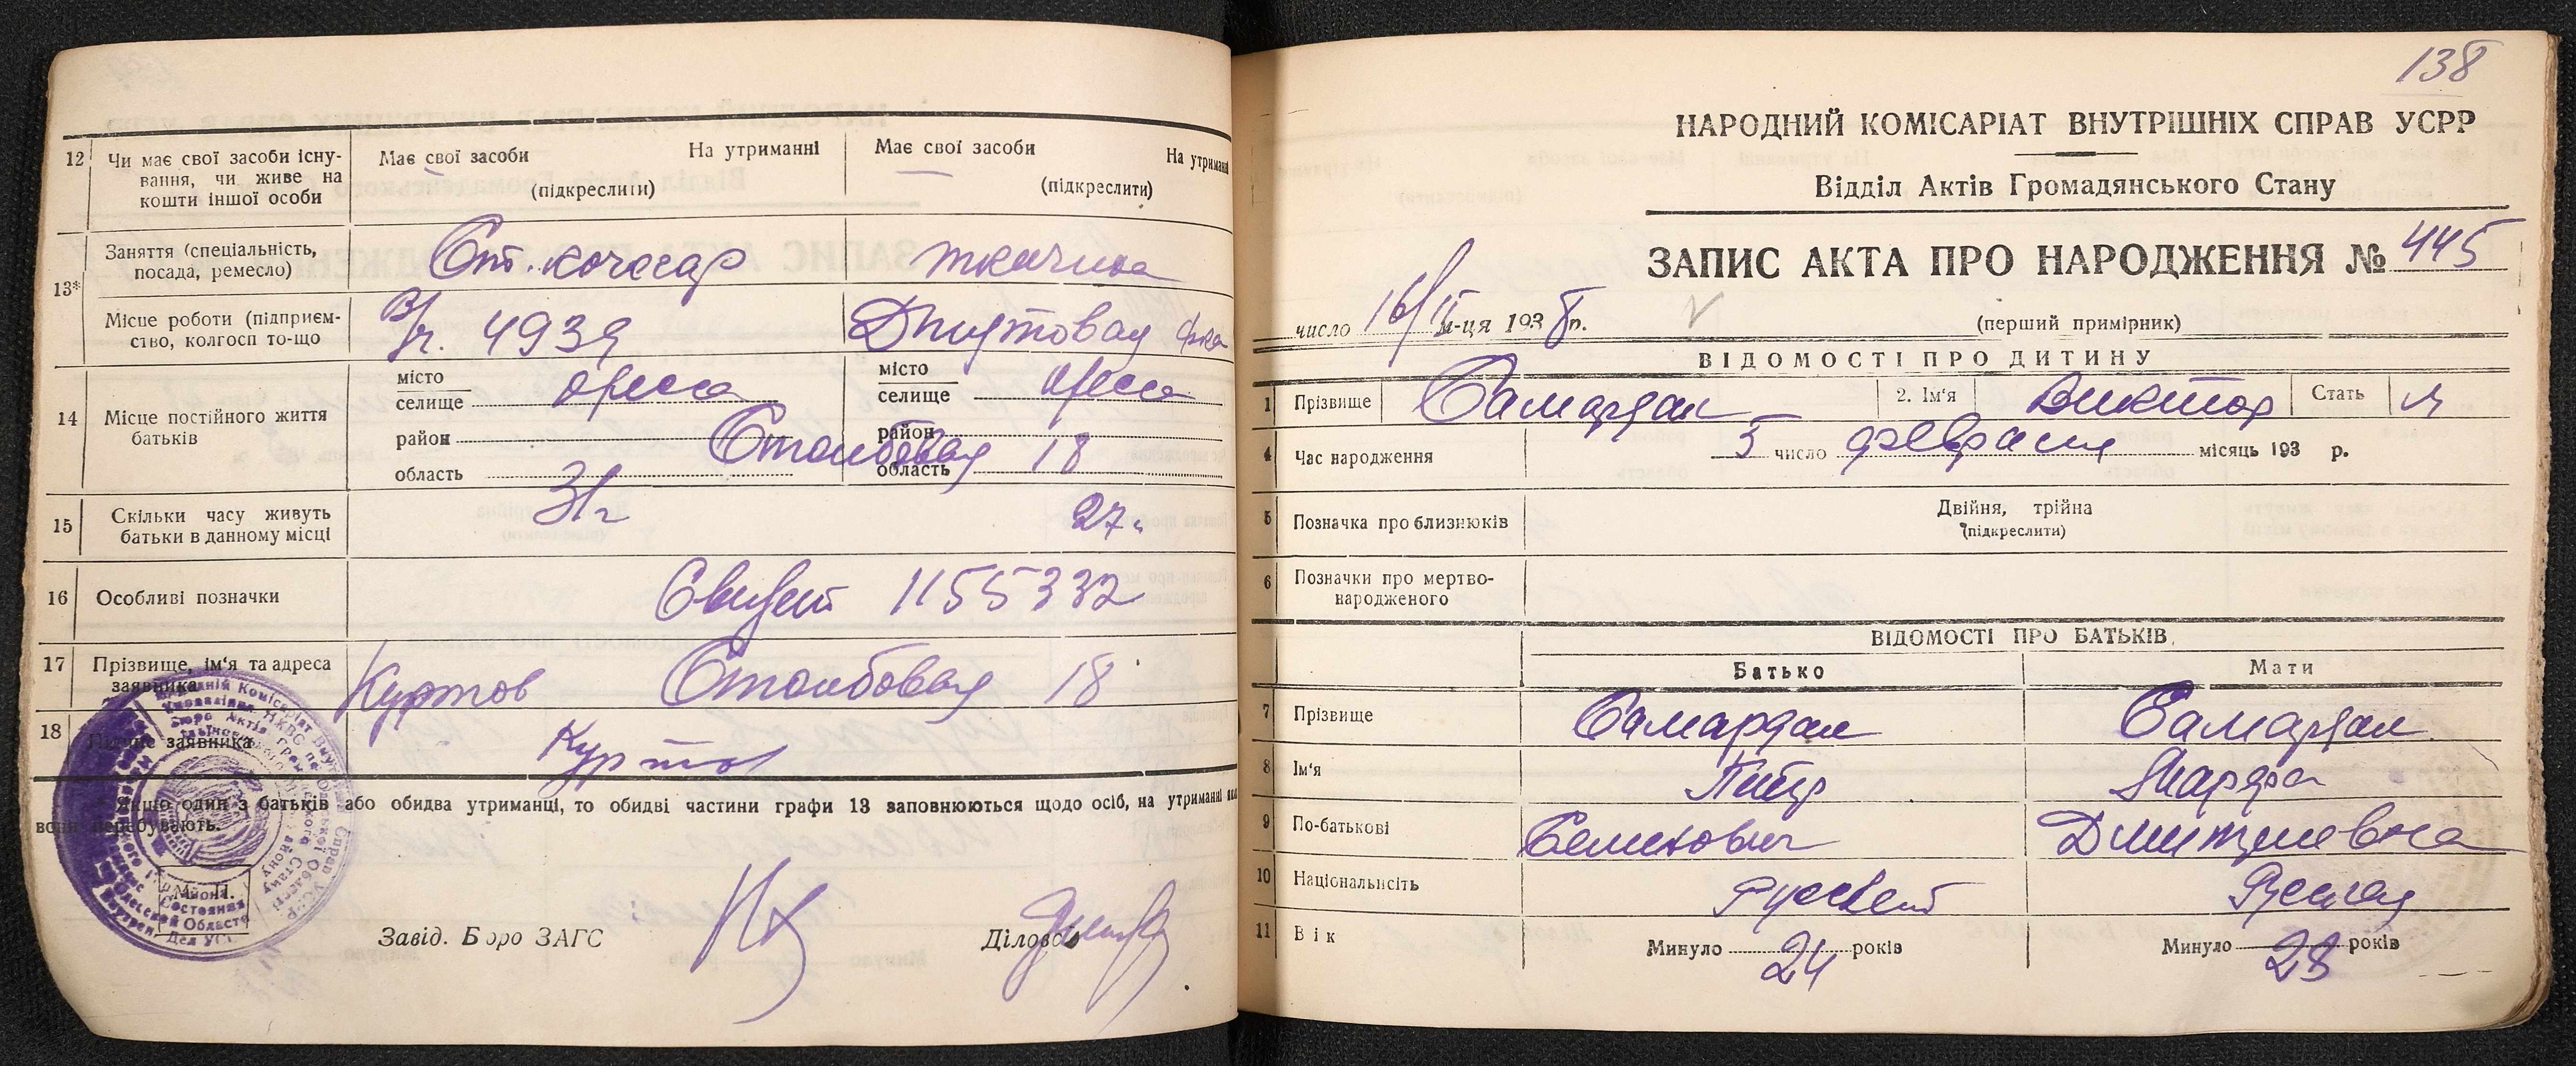 12 Чи має свої засоби існу-
вання, чи живе на
кошти іншої особи
Має свої засоби На утриманні
(підкреслити)
Має свої засоби На утриманні
(підкреслити)
13* Заняття (спеціальність,
посада, ремесло)
От. кочегар ткачиха
Місце роботи (підприєм-
ство, колгосп то-що
В/ч. 4939 Джутовая ф-ка
14 Місце постійного життя
батьків
місто Одесса
селище
район
область
місто Одесса
селище
район
область
Столбовая 18
15 Скільки часу живуть
батьки в данному місці
31 г 27 г
16 Особливі позначки
Свидет 1155332
17 Прізвище, ім'я та адреса
заявника
Куртов Столбовая 18
18 Підпис заявника
Куртов
* Якщо один з батьків або обидва утриманці, то обидві частини графи 13 заповнюються щодо осіб, на утриманні
вони перебувають.
М. П.
Завід. Бюро ЗАГС Діловод
138
НАРОДНИЙ КОМІСАРІАТ ВНУТРІШНІХ СПРАВ УСРР
Відділ Актів Громадянського Стану
ЗАПИС АКТА ПРО НАРОДЖЕННЯ № 445
число 16/II м-ця 1938 р.
(перший примірник)
ВІДОМОСТІ ПРО ДИТИНУ
1 Прізвище Самардак 2. Ім'я Виктор Стать М
4 Час народження 5 число февраля місяць 193 р.
5 Позначка про близнюків Двійня, трійна
(підкреслити)
6 Позначки про мертво-
народженого
ВІДОМОСТІ ПРО БАТЬКІВ
Батько Мати
7 Прізвище Самардак Самардак
8 Ім'я Петр Марфа
9 По-батькові Семенович Дмитриевна
10 Національність Русский Русская
11 Вік Минуло 24 років Минуло 28 років